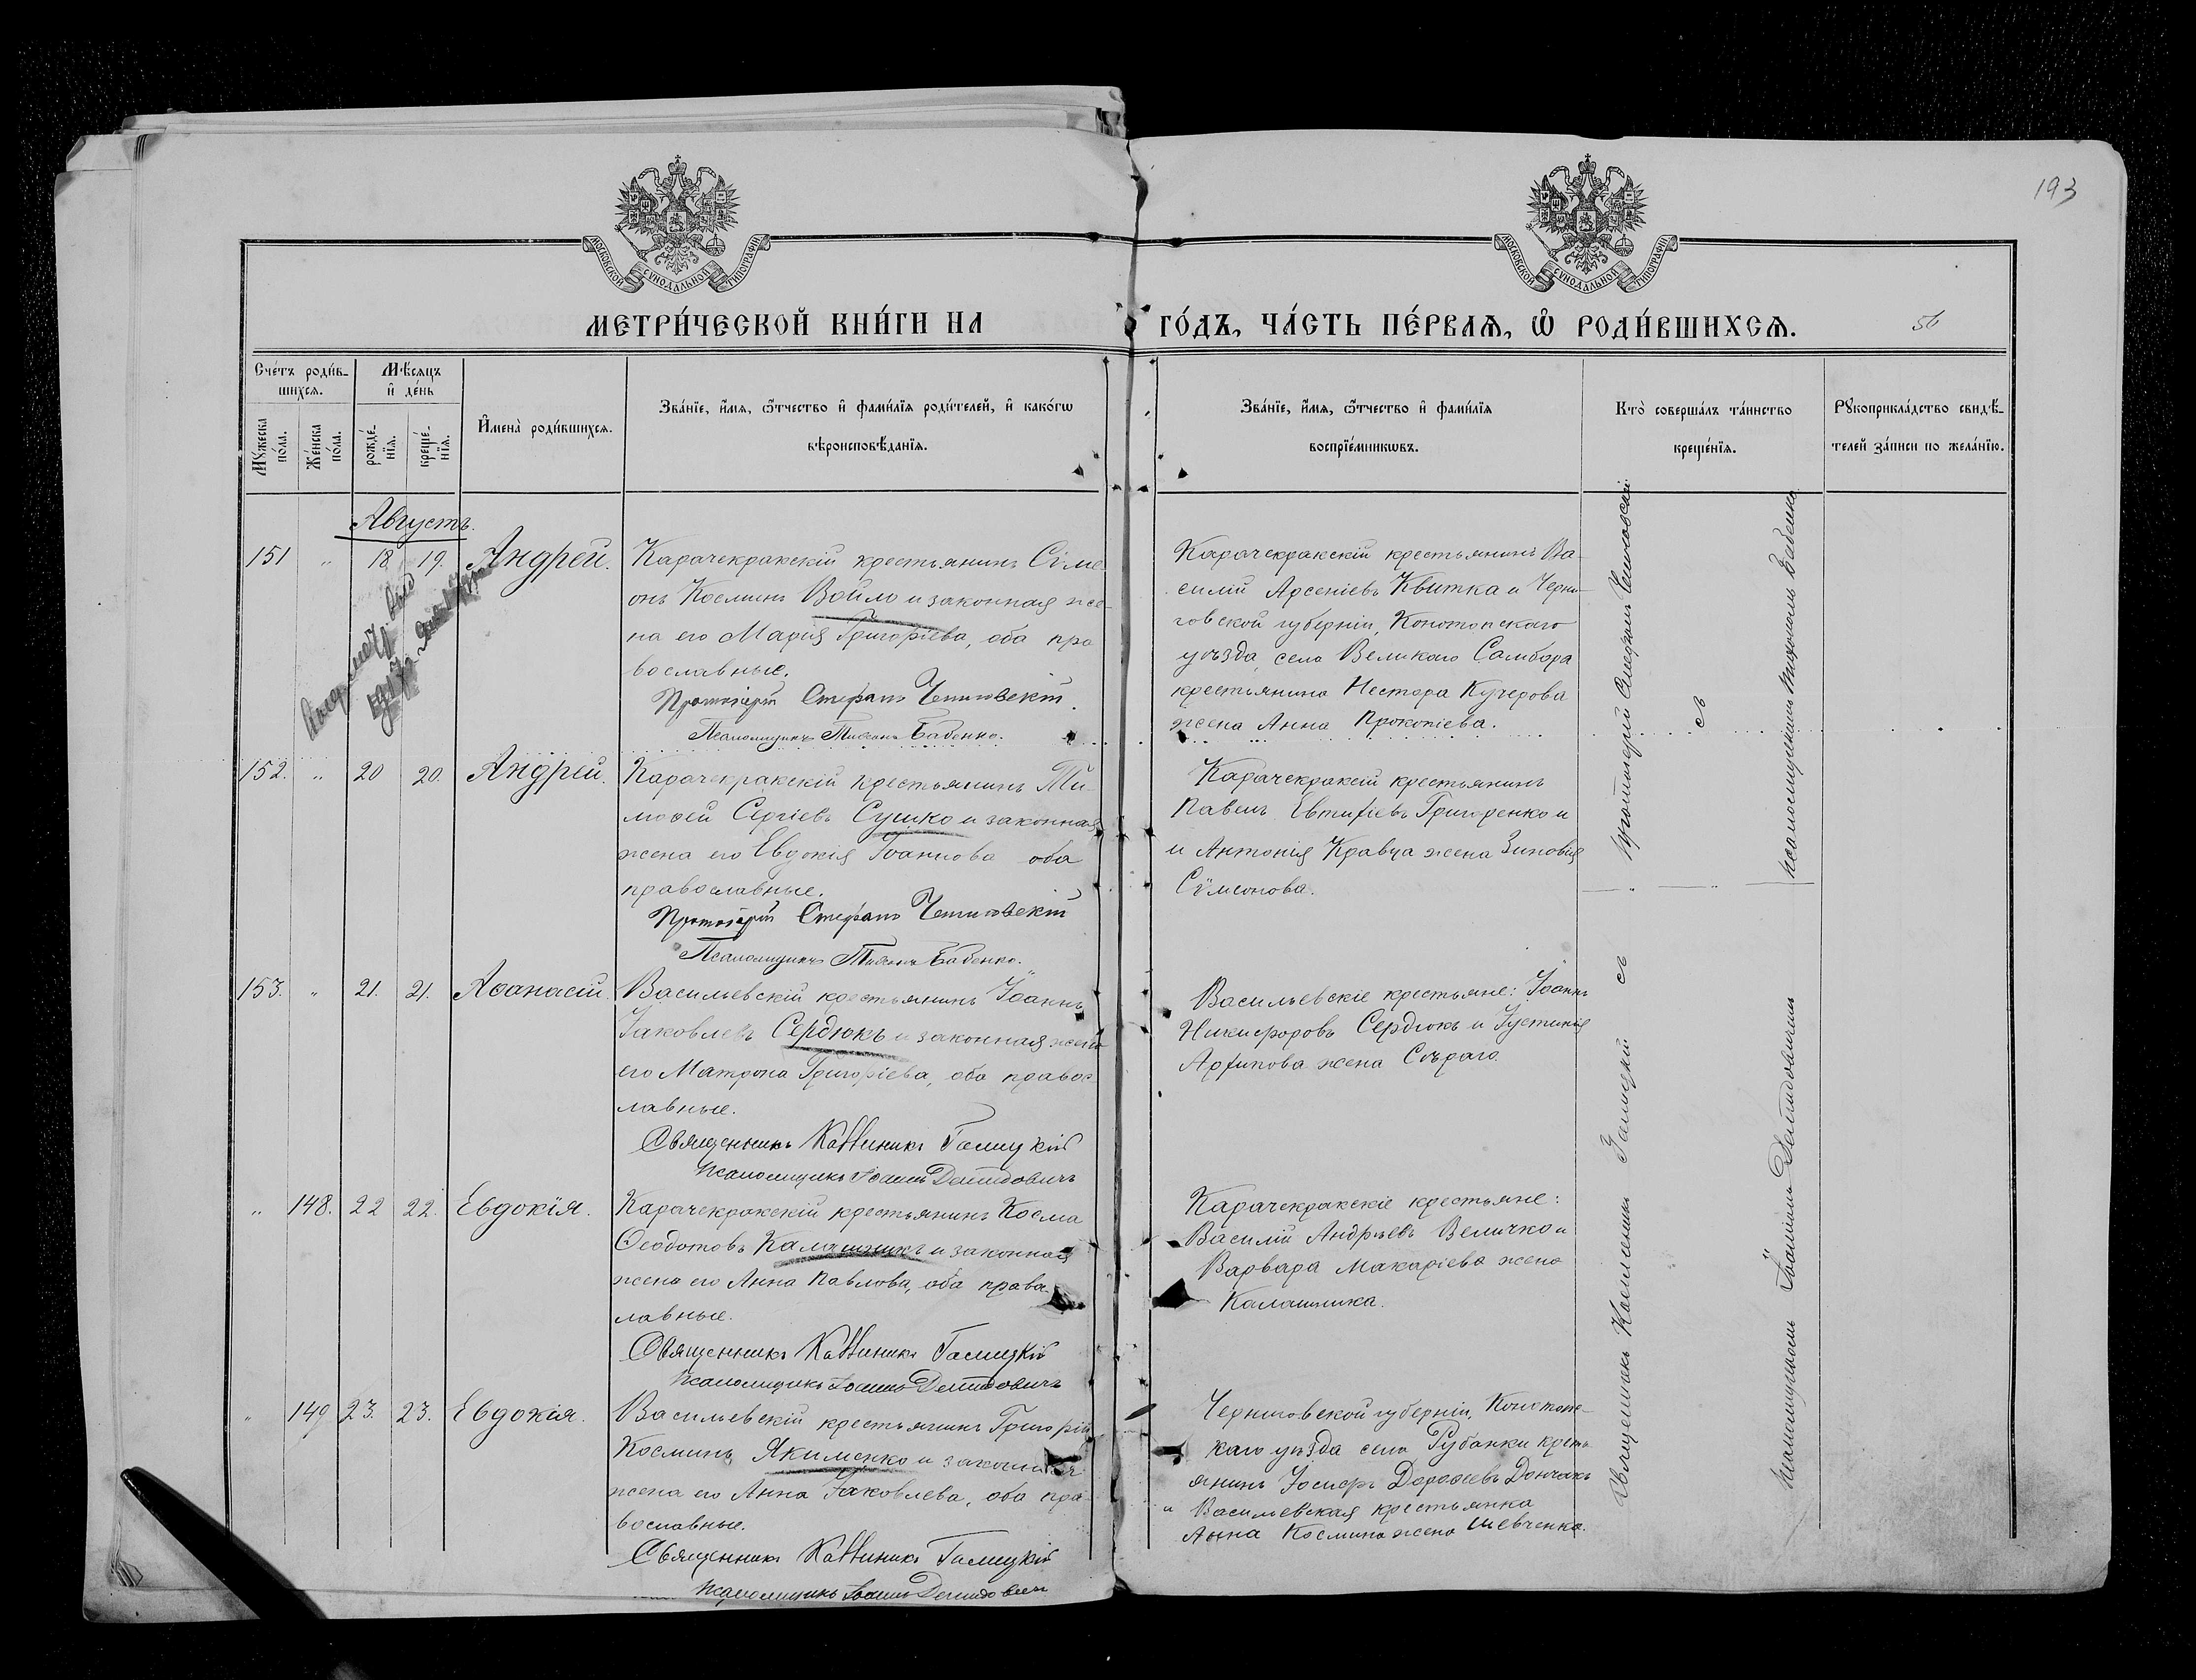 193
МОСКОВСКОЙ СѴНОДАЛЬНОЙ ТИПОГРАФІИ
МОСКОВСКОЙ СѴНОДАЛЬНОЙ ТИПОГРАФІИ
МЕТРИ́ЧЕСКОЙ КНИ́ГИ НА ГО́ДЪ, ЧА́СТЬ ПЕ́РВАѦ, Ѡ҆ РОДИ́ВШИХСѦ.
56
Сче́тъ роди́в-
шихсѧ.
Мꙋ́жеска по́ла.
Же́нска по́ла.
Мѣ́сѧцъ
и҆ де́нь
рожде́-
нїѧ.
креще́-
нїѧ.
И҆мена̀ роди́вшихсѧ.
Зва́нїе, и҆́мѧ, ѻ҆́тчество и҆ фами́лїѧ роди́телей, и҆ како́гѡ
вѣроисповѣ́данїѧ.
Зва́нїе, и҆́мѧ, ѻ҆́тчество и҆ фами́лїѧ
воспрїе́мникѡвъ.
Кто̀ соверша́лъ та́инство
креще́нїѧ.
Рꙋкоприкла́дство свидѣ́-
телей за́писи по жела́нїю.
Августъ.
151 " 18 19. Андрей.
Карачекракскій крестьянинъ Сѵме
онъ Косминъ Войло и законная же-
на его Марія Григоріева, оба пра
вославные.
Протоіерей Стефанъ
Псаломщикъ Тихонъ Бабенко.
Карачекракскій крестьянинъ Ва-
силій Арсеніевъ Квитка и Черни-
говской губерніи, Конотопскаго
уѣзда, села Великаго Самбора
крестьянина Нестора Кучерова
жена Анна Прокопіева.
Протоіерей Стефанъ
съ
псаломщикомъ Тихономъ Бабенко
152. " 20 20. Андрей.
Карачекракскій крестьянинъ Ти-
моѳей Сергіевъ Сушко и законная
жена его Евдокія Іоаннова оба
православные.
Протоіерей Стефанъ
Псаломщикъ Тихонъ Бабенко.
Карачекракскій крестьянинъ
Павелъ Евтихіевъ Григоренко и
и Антонія Кравца жена Зиновія
Сѵмеонова.
153. " 21. 21. Аѳанасій.
Васильевскій крестьянинъ Іоаннъ
Іаковлевъ Сердюкъ и законная жена
его Матрона Григоріева, оба правос
лавные.
Священникъ Каллиникъ Галицкій
Псаломщикъ Іоаннъ Демидовичъ
Васильевскіе крестьяне: Іоаннъ
Никифоровъ Сердюкъ и Іустинія
Архипова жена Сѣраго.
Священникъ Галицкій съ
псаломщикомъ Іоанномъ Демидовичемъ
" 148. 22 22. Евдокія.
Карачекракскій крестьянинъ Косма
Ѳеодотовъ Калашникъ и законная
жена его Анна Павлова, оба право
лавные.
Священникъ Каллиникъ Галицкій
Псаломщикъ Іоаннъ Демидовичъ
Карачекракскіе крестьяне:
Василій Андреевъ Величко и
Варвара Макаріева жена
Калашника.
" 149 23. 23. Евдокія.
Васильевскій крестьянинъ Григорій
Косминъ Якименко и законная
жена его Анна Іаковлева, оба пра
вославные.
Священникъ Каллиникъ Галицкій
Псаломщикъ Іоаннъ Демидовичъ
Черниговской губерніи, Конотопс-
каго уѣзда села Рубанки кресть
янинъ Іосифъ Дороѳеевъ Дончакъ
и Васильевская крестьянка
Анна Космина жена Шевченко.